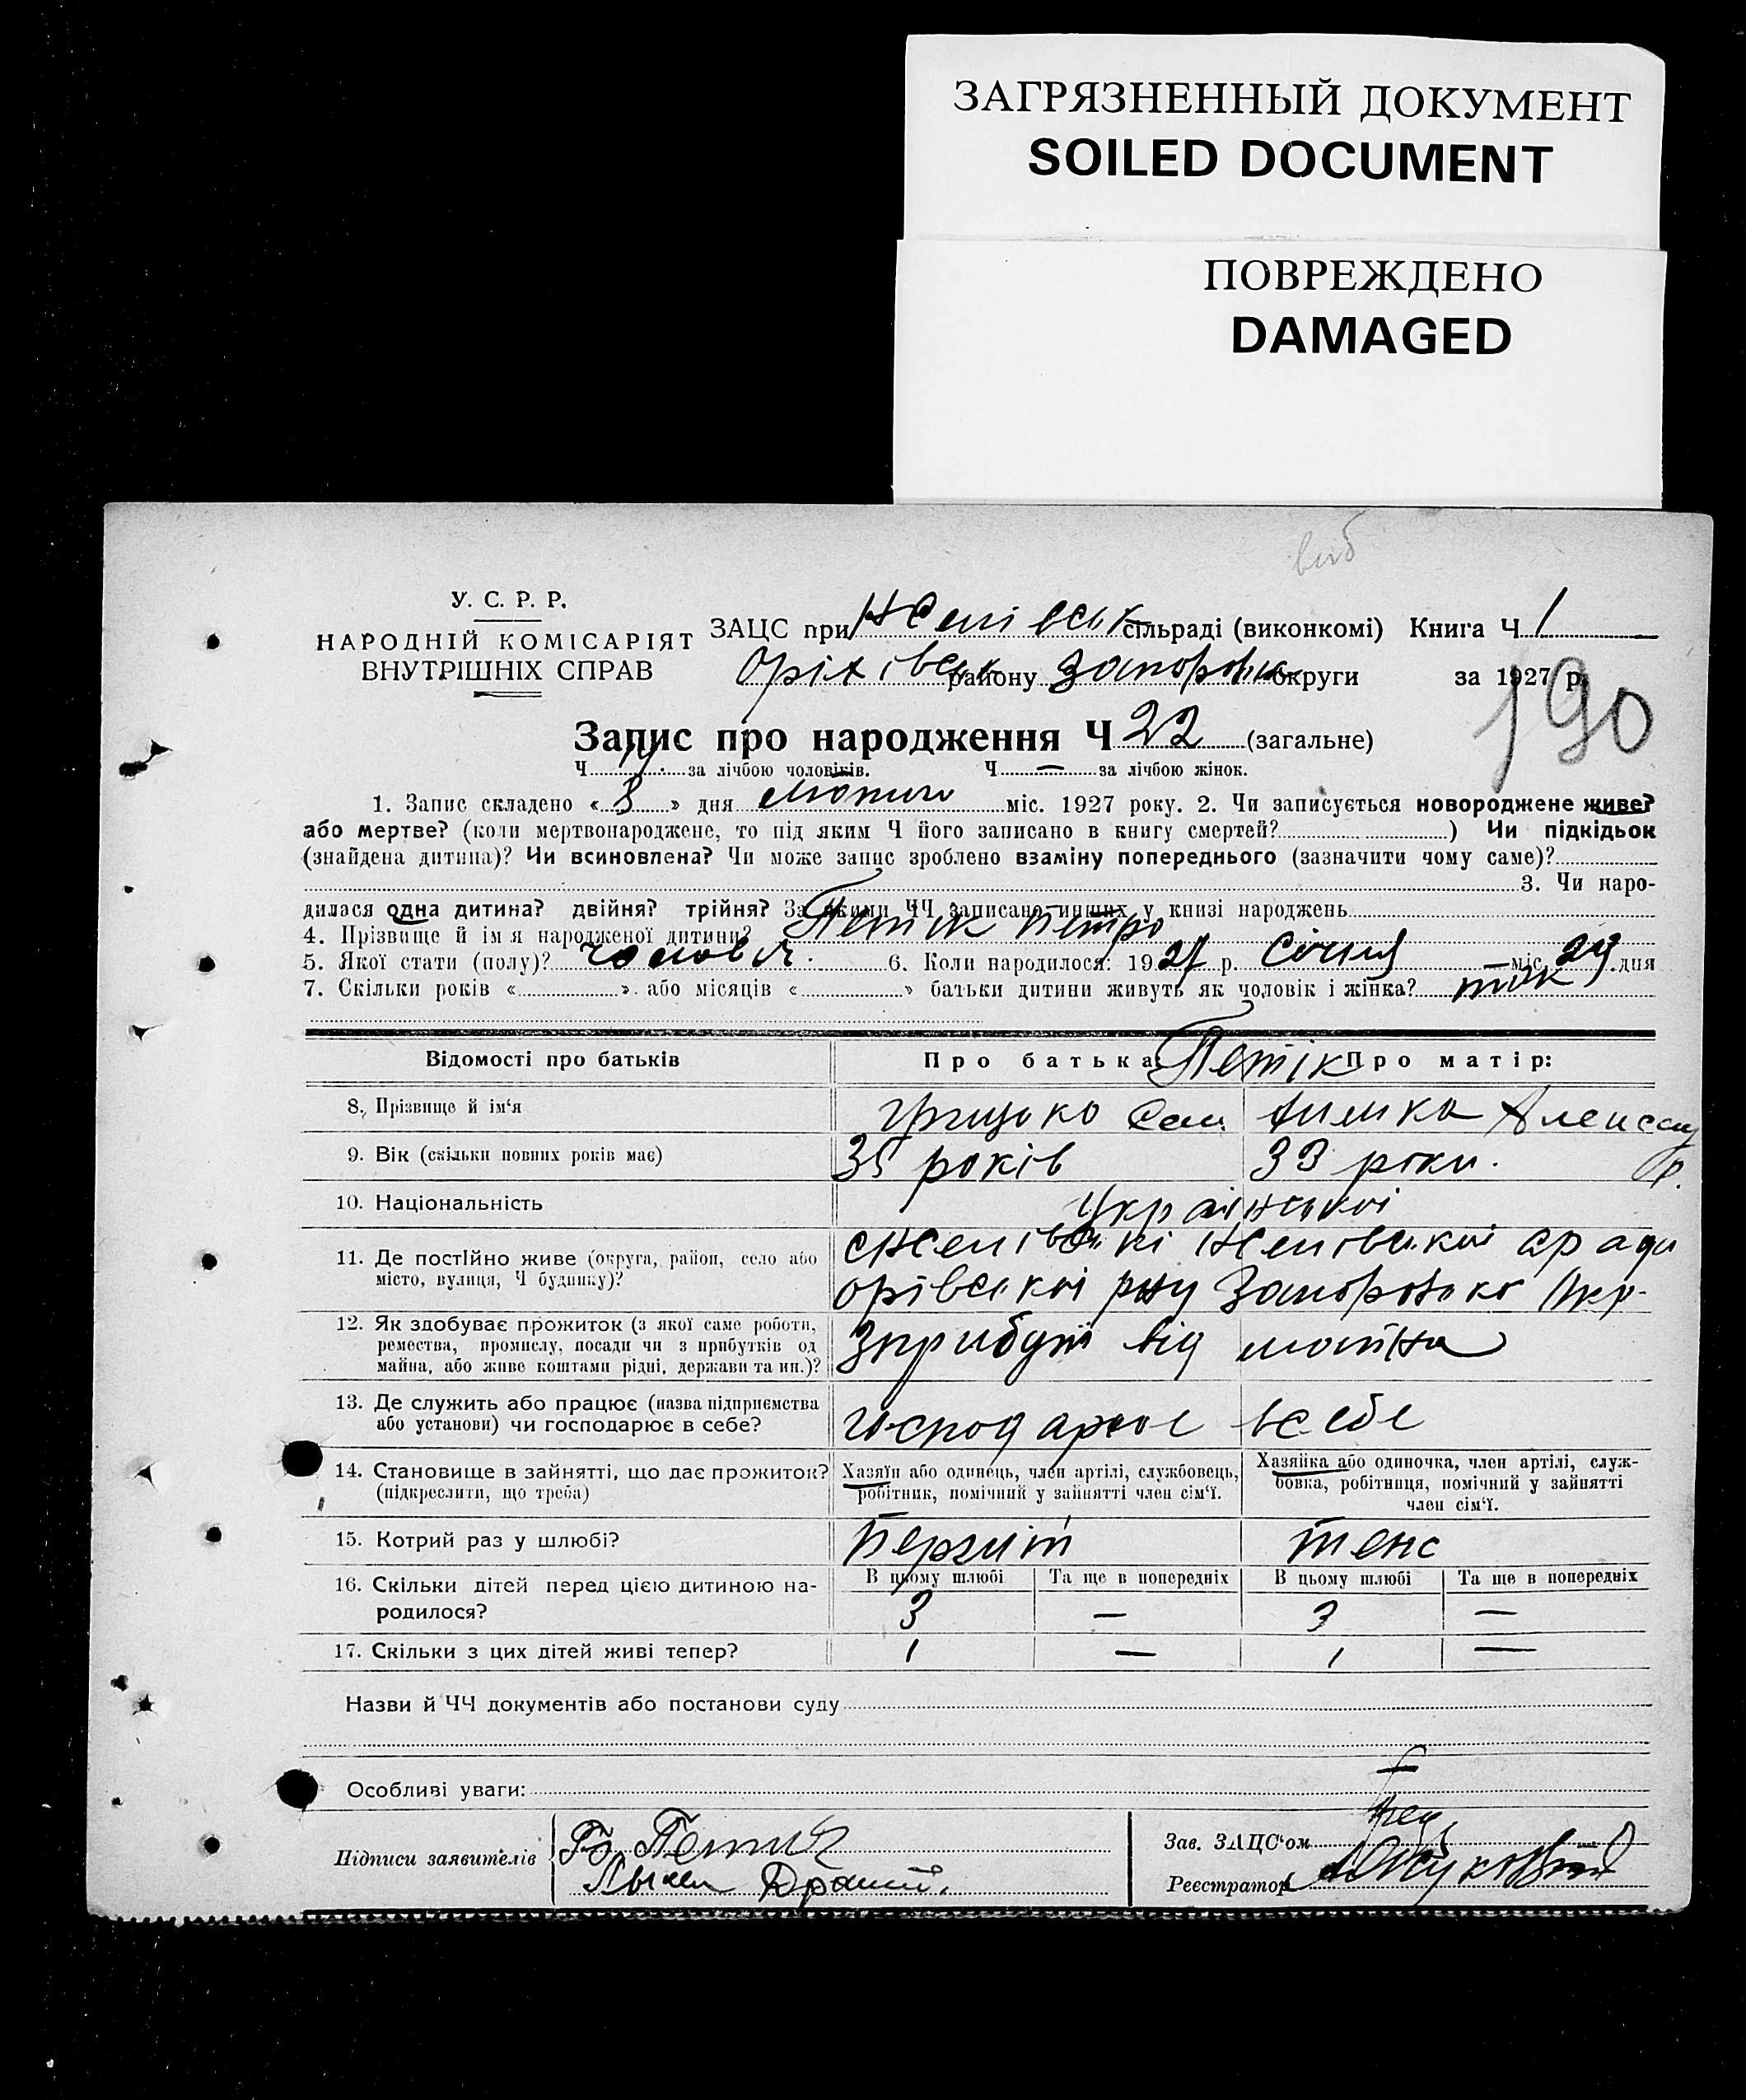 ЗАГРЯЗНЕННЫЙ ДОКУМЕНТ
SOILED DOCUMENT
ПОВРЕЖДЕНО
DAMAGED
У. С. Р. Р.
НАРОДНІЙ КОМІСАРІЯТ
ВНУТРІШНІХ СПРАВ
ЗАЦС при сільраді (виконкомі) Книга Ч 1
Оріхівськ району Запоріж округи за 1927 р.
190
Запис про народження Ч 22 (загальне)
Ч за лічбою чоловіків. Ч — за лічбою жінок.
1. Запис складено « 3 » дня Лютого міс. 1927 року. 2. Чи записується новороджене живе?
або мертве? (коли мертвонароджене, то під яким Ч його записано в книгу смертей? ) Чи підкідьок
(знайдена дитина)? Чи всиновлена? Чи може запис зроблено взаміну попереднього (зазначити чому саме)?
3. Чи наро-
дилася одна дитина? двійня? трійня? За якими ЧЧ записано инших у книзі народжень
4. Прізвище й ім я народженої дитини? Петік Петро
5. Якої стати (полу)? чоловіч. 6. Коли народилося: 1927 р. Січня міс. 29 дня
7. Скільки років « » або місяців « » батьки дитини живуть як чоловік і жінка? так
Відомості про батьків Про батька: Петік Про матір:
8. Прізвище й ім‘я Грицько Сем.
9. Вік (скільки повних років має) 35 років 33 роки.
10. Національність Української
11. Де постійно живе (округа, район, село або
місто, вулиця, Ч будинку)?
12. Як здобуває прожиток (з якої саме роботи,
ремества, промислу, посади чи з прибутків од
майна, або живе коштами рідні, держави та ин.)? Зприбутків від майна
13. Де служить або працює (назва підприємства
або установи) чи господарює в себе? господарює в себе
14. Становище в зайнятті, що дає прожиток?
(підкреслити, що треба)
Хазяїн або одинець, член артілі, службовець,
робітник, помічний у зайнятті член сім‘ї.
Хазяйка або одиночка, член артілі, служ-
бовка, робітниця, помічний у зайнятті
член сім‘ї.
15. Котрий раз у шлюбі? Перший теж
16. Скільки дітей перед цією дитиною на-
родилося?
В цьому шлюбі Та ще в попередніх В цьому шлюбі Та ще в попередніх
3 — 3 —
17. Скільки з цих дітей живі тепер? 1 — 1 —
Назви й ЧЧ документів або постанови суду
Особливі уваги:
Підписи заявителів
Зав. ЗАЦС‘ом
Реєстратор